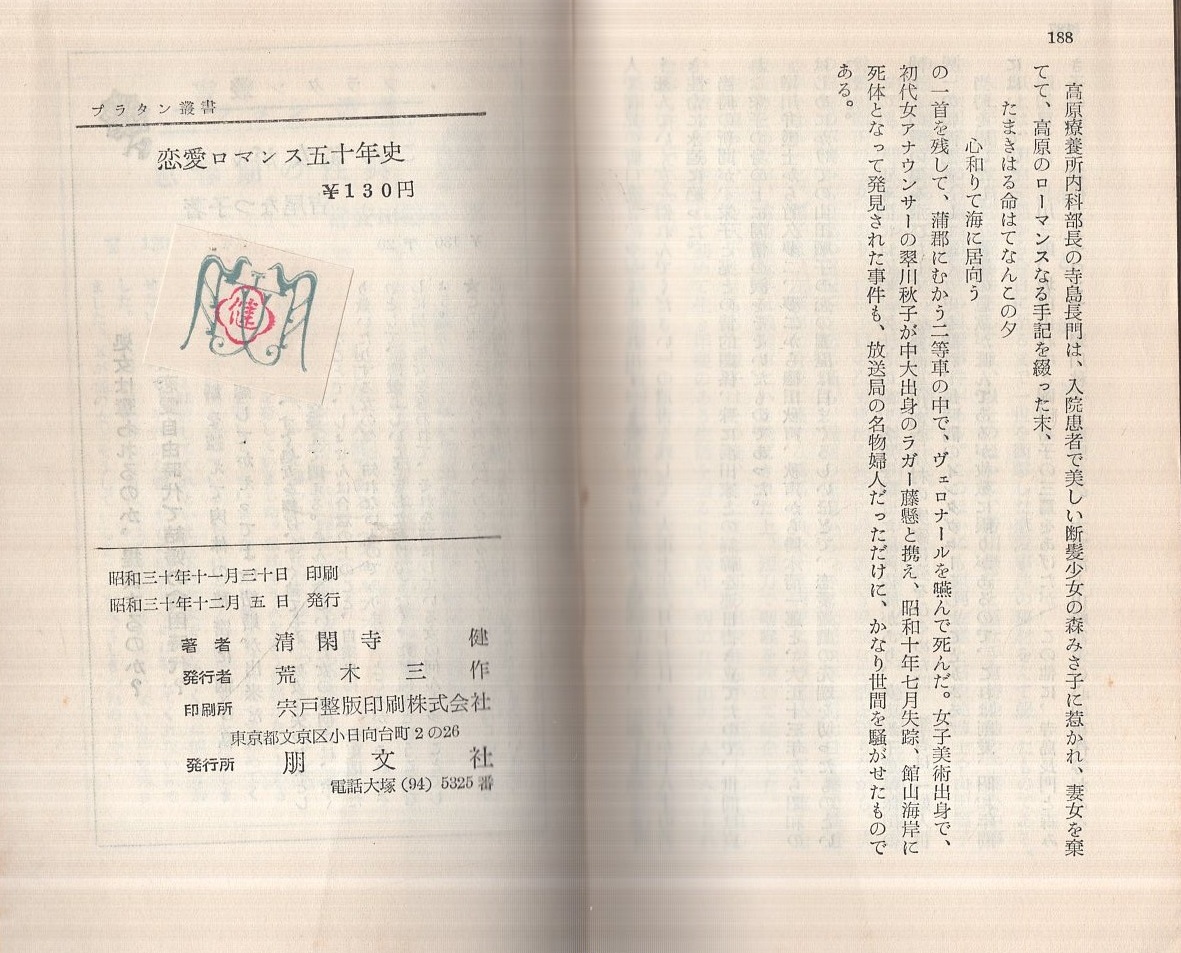 188
高原療養所内科部長の寺島長門は、入院患者で美しい断髪少女の森みさ子に惹かれ、妻女を棄
てて、高原のローマンスなる手記を綴った末、
たまきはる命はてなんこの夕
心和りて海に居向う
の一首を残して、蒲郡にむかう二等車の中で、ヴェロナールを嚥んで死んだ。女子美術出身で、
初代女アナウンサーの翠川秋子が中大出身のラガー藤懸と携え、昭和十年七月失踪、館山海岸に
死体となって発見された事件も、放送局の名物婦人だっただけに、かなり世間を騒がせたもので
ある。
プラタン叢書
恋愛ロマンス五十年史
¥130円
健
昭和三十年十一月三十日 印刷
昭和三十年十二月 五 日 発行
著者 清閑寺 健
発行者 荒木三作
印刷所 宍戸整版印刷株式会社
東京都文京区小日向台町2の26
発行所 朋文社
電話大塚(94) 5325番